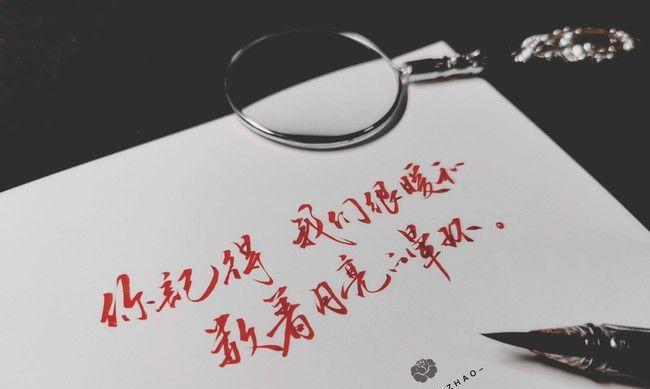 你記得 我们很暖和
数着月亮的晕环。
ZHAO-